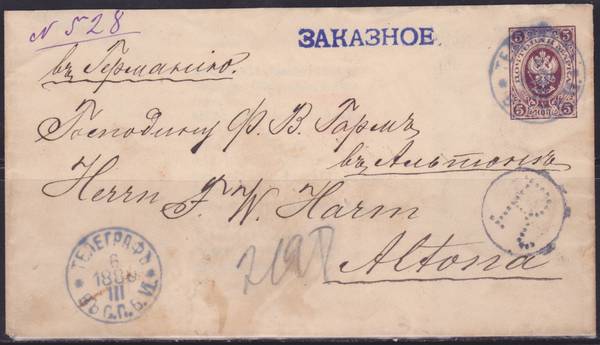 N 528
ЗАКАЗНОЕ.
5 5
ПОЧТОВАЯ МАРКА
5 КОП 5
въ Германію.
Господину Ф. В. Гармъ
въ Альтонѣ
Herrn F. W. Harm
Altona
ТЕЛЕГРАФЪ
6
188
III